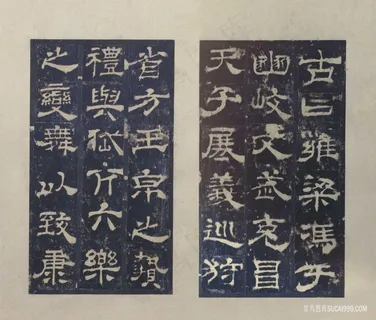 古曰雍梁馮于
豳岐文武克昌
天子展義巡狩
省方玉帛之贄
禮與岱亢六樂
之變舞以致康
SUCAI999.COM